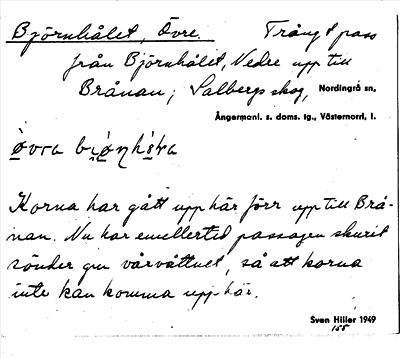 Björnhålet, Övre. Trångt pass
från Björnhålet, Nedre upp till
Brånan; Salbergs skog, Nordingrå sn,
Ångermanl. s. doms. tg., Västernorrl. l.
Korna har gått upp här förr upp till Brå-
nan. Nu har emellertid passagen skurit
sönder gm vårvattnet, så att korna
inte kan komma upp här.
Sven Hiller 1949